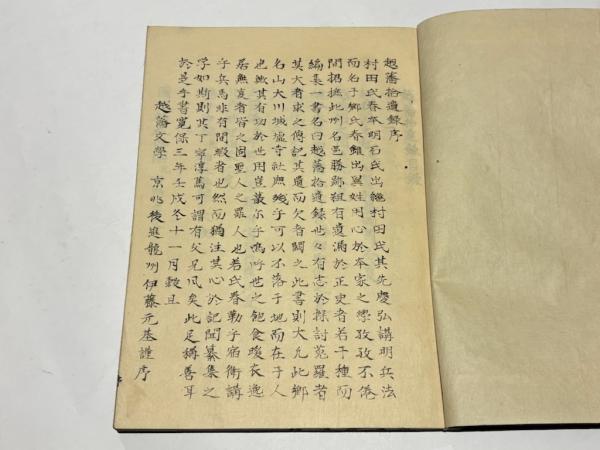 越藩拾遺録序
村田氏春本明石氏出継村田氏其先慶弘講明兵法
而名于郷氏春雖出異姓用心於本家之學孜孜不倦
間摺撫此州名邑勝跡粗有遺漏於正史者若干種而
編集一書名曰越藩拾遺録世々有志於探討蒐羅者
其大者求之傳記其遺而欠者闕之此書則大凡此郷
名山大川城墟寺社無幾乎可以不落于地而在于人
也歟其有功於世用豈蕞尓乎嗚呼世之飽食煖衣逸
居無度者皆之固聖人之罪人也若氏春勤于宿衛講
乎兵馬非有間暇者也然而猶注其心於記聞纂集之
學如斯則其丁寧淳篤可謂有父兄風矣此足稱善耳
於是乎書寛保三年壬戌冬十一月穀旦
越藩文學 京兆後進龍洲伊藤元基謹序